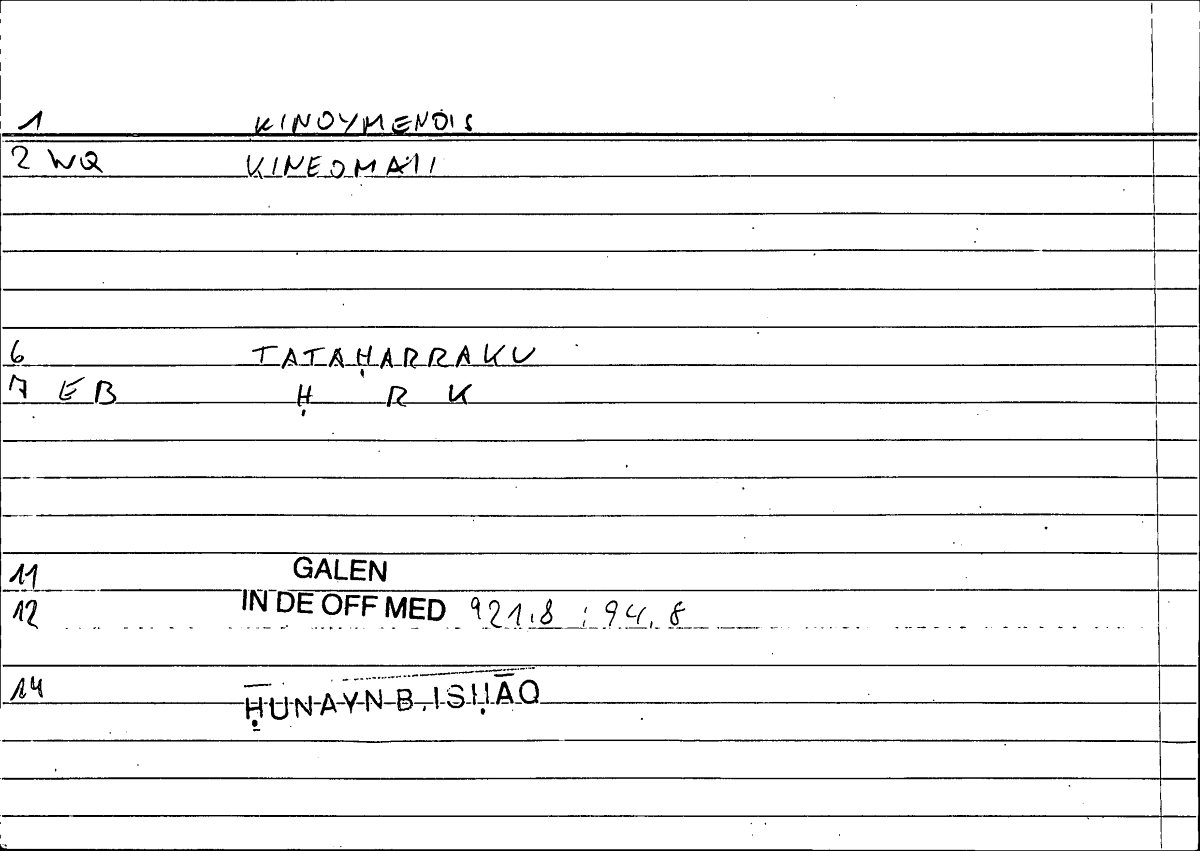 1 KINOYMENOIS
2 WQ KINEOMAI 1
6 TATAḤARRAKU
7 EB Ḥ R K
11 GALEN
12 IN DE OFF MED 921.8 : 94.8
14 ḤUNAYN B. ISḤĀQ